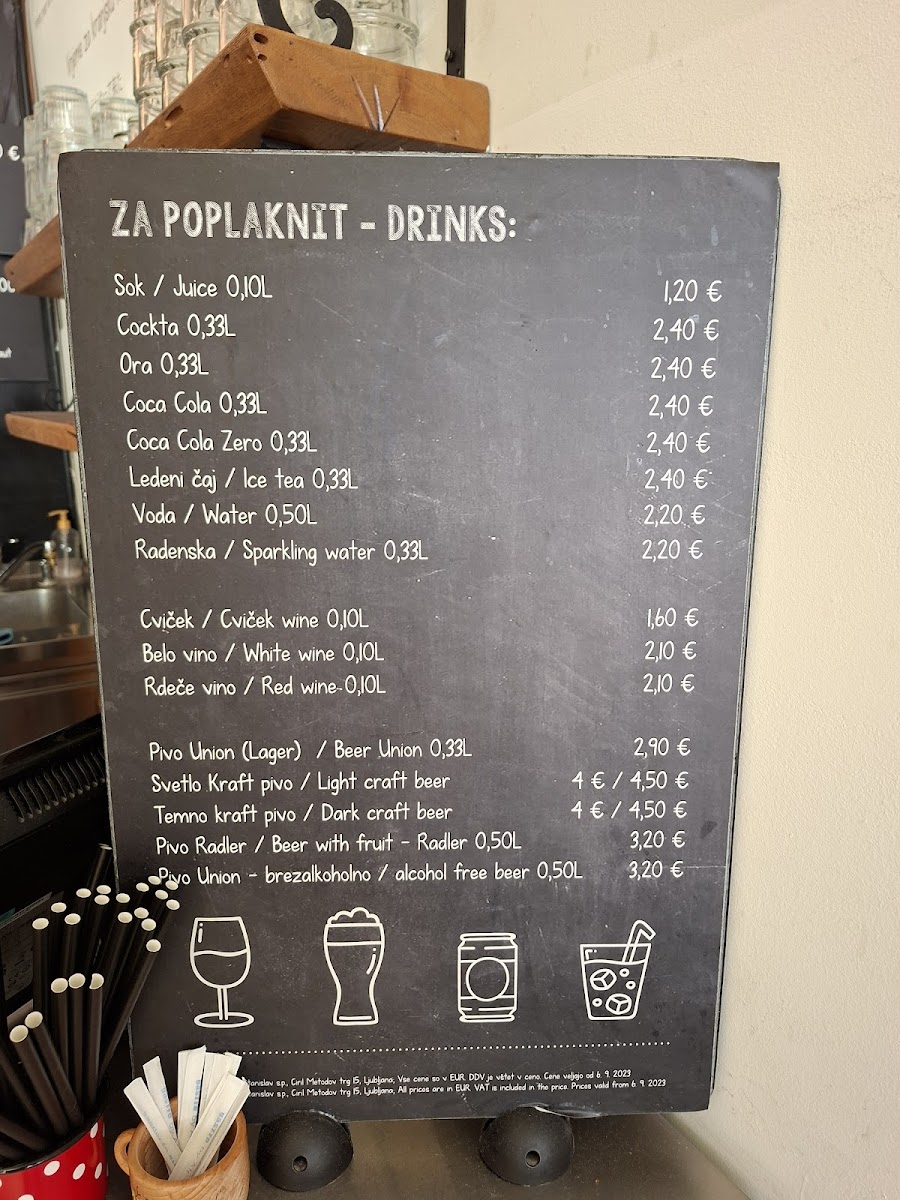 ZA POPLAKNIT - DRINKS:
Sok / Juice 0,10L 1,20 €
Cockta 0,33L 2,40 €
Ora 0,33L 2,40 €
Coca Cola 0,33L 2,40 €
Coca Cola Zero 0,33L 2,40 €
Ledeni čaj / Ice tea 0,33L 2,40 €
Voda / Water 0,50L 2,20 €
Radenska / Sparkling water 0,33L 2,20 €
Cviček / Cviček wine 0,10L 1,60 €
Belo vino / White wine 0,10L 2,10 €
Rdeče vino / Red wine 0,10L 2,10 €
Pivo Union (Lager) / Beer Union 0,33L 2,90 €
Svetlo Kraft pivo / Light craft beer 4 € / 4,50 €
Temno kraft pivo / Dark craft beer 4 € / 4,50 €
Pivo Radler / Beer with fruit - Radler 0,50L 3,20 €
Pivo Union - brezalkoholno / alcohol free beer 0,50L 3,20 €
s.p., Ciril Metodov trg 15, Ljubljana, Vse cene so v EUR. DDV je vštet v ceno. Cene veljajo od 6. 9. 2023
s.p., Ciril Metodov trg 15, Ljubljana, All prices are in EUR. VAT is included in the price. Prices valid from 6. 9. 2023